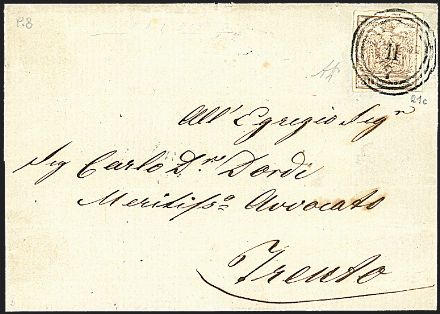 P.8
All' Egregio Sigr
Sig Carlo Dr Dordi
Meritisso Avvocato
Trento
21c